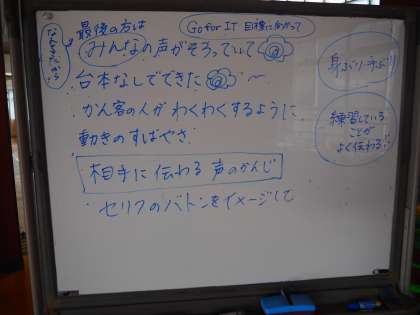 最後の方は
Go for IT 目標に向かって
みんなの声がそろっていて
台本なしでできた 〜
かん客の人がわくわくするように
動きのすばやさ
相手に伝わる声のかんじ
・セリフのバトンをイメージして
身ぶり手ぶり
練習している
ことが
よく伝わる!!